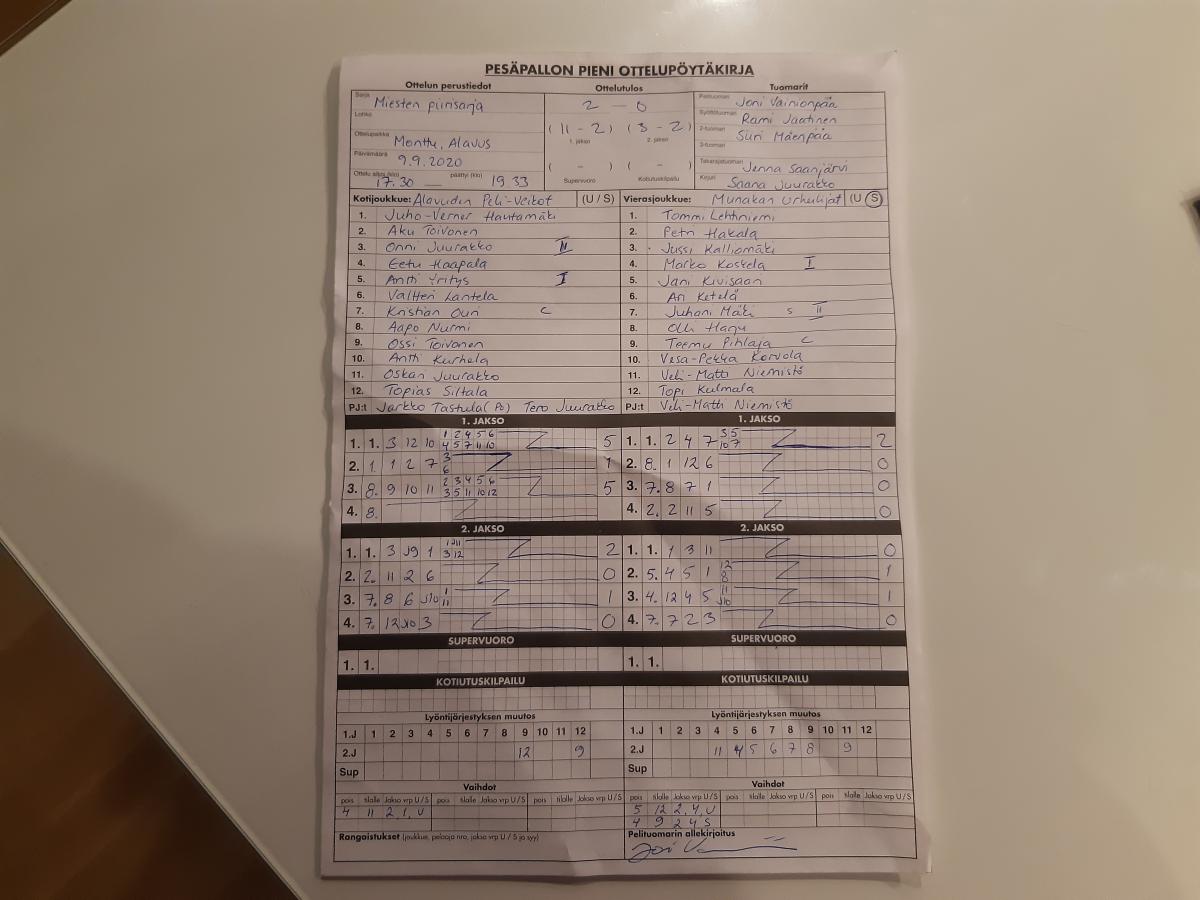 PESÄPALLON PIENI OTTELUPÖYTÄKIRJA
Ottelun perustiedot Ottelutulos Tuomarit
Sarja Miesten piirisarja 2 - 0 Pelituomari Joni Vainionpää
Lohko Syöttötuomari Rami Jaatinen
(11 - 2) (3 - 2) 2-tuomari Siiri Mäenpää
Ottelupaikka Monttu, Alavus 1. jakso 2. jakso 3-tuomari
Päivämäärä 9.9.2020 ( - ) ( - ) Takarajatuomari Jenna Saanjärvi
Ottelu alkoi (klo) 17.30 päättyi (klo) 19.33 Supervuoro Kotiutuskilpailu Kirjuri Saana Juurakko
Kotijoukkue: Alavuden Peli-Veikot (U / S) Vierasjoukkue: Munakan Urheilijat (U / S)
1. Juho-Verner Hautamäki 1. Tommi Lehtiniemi
2. Aku Toivonen 2. Petri Hakala
3. Onni Juurakko II 3. Jussi Kalliomäki
4. Eetu Haapala 4. Marko Koskela I
5. Antti Yritys I 5. Jani Kivisaari
6. Valtteri Lantela 6. Ari Ketelä
7. Kristian Ouri C 7. Juhani Mäki S II
8. Aapo Nurmi 8. Olli Harju
9. Ossi Toivonen 9. Teemu Pihlaja C
10. Antti Kurhela 10. Vesa-Pekka Korvola
11. Oskari Juurakko 11. Veli-Matti Niemistö
12. Topias Siltala 12. Topi Kulmala
PJ:t Jarkko Tastula (Po) Tero Juurakko PJ:t Veli-Matti Niemistö
1. JAKSO 1. JAKSO
1. 1. 3 12 10 1 2 4 5 6 5 1. 1. 2 4 7 3 5 2
4 5 7 11 10 10 7
2. 1. 1 2 7 3 1 2. 8. 1 12 6 0
6
3. 8. 9 10 11 2 3 4 5 6 5 3. 7. 8 7 1 0
3 5 11 10 12
4. 8. 4. 2. 2 11 5 0
2. JAKSO 2. JAKSO
1. 1. 3 J9 1 2 1. 1. 1 3 11 0
3 12
2. 2. 11 2 6 0 2. 5. 4 5 1 12 1
8
3. 7. 8 6 J10 1 1 3. 4. 12 4 5 11 1
11 J10
4. 7. 12 J10 3 0 4. 7. 7 2 3 0
SUPERVUORO SUPERVUORO
1. 1. 1. 1.
KOTIUTUSKILPAILU KOTIUTUSKILPAILU
Lyöntijärjestyksen muutos Lyöntijärjestyksen muutos
1.J 1 2 3 4 5 6 7 8 9 10 11 12 1.J 1 2 3 4 5 6 7 8 9 10 11 12
2.J 12 9 2.J 11 4 5 6 7 8 9
Sup Sup
Vaihdot Vaihdot
pois tilalle Jakso vrp U / S pois tilalle Jakso vrp U / S pois tilalle Jakso vrp U / S pois tilalle Jakso vrp U / S pois tilalle Jakso vrp U / S pois tilalle Jakso vrp U / S
4 11 2 1. U 5 12 2 4 U
4 9 2 4 S
Rangaistukset (joukkue, pelaaja nro, jakso vrp U / S ja syy) Pelituomarin allekirjoitus